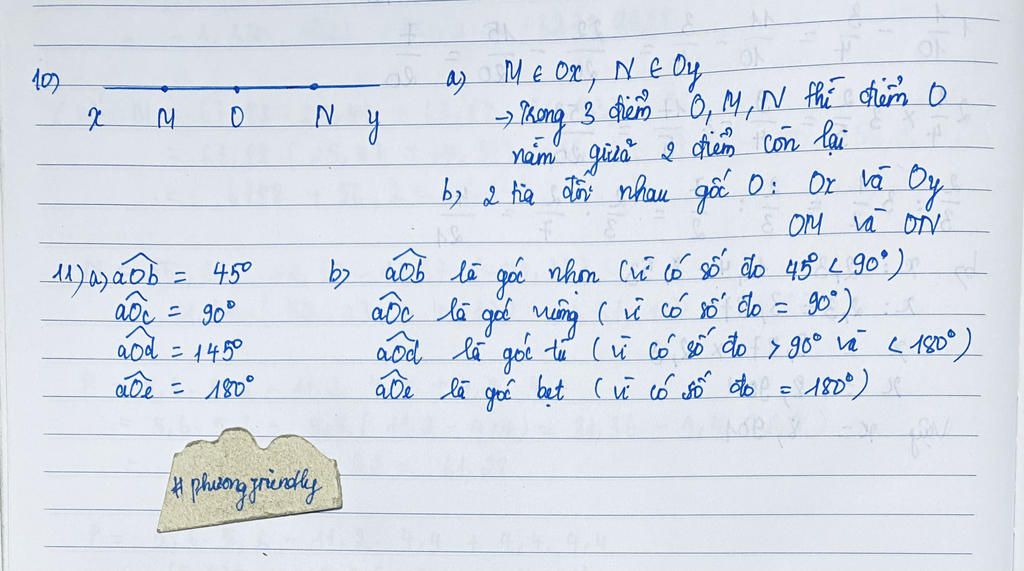 10) a) M ∈ Ox, N ∈ Oy
x M O N y
→ Trong 3 điểm O, M, N thì điểm O
nằm giữa 2 điểm còn lại
b) 2 tia đối nhau gốc O: Ox và Oy
OM và ON
11) a) aOb = 45° b) aOb là góc nhọn (vì có số đo 45° < 90°)
aOc = 90° aOc là góc vuông (vì có số đo = 90°)
aOd = 145° aOd là góc tù (vì có số đo > 90° và < 180°)
aOe = 180° aOe là góc bẹt (vì có số đo = 180°)
# phuongfriendly